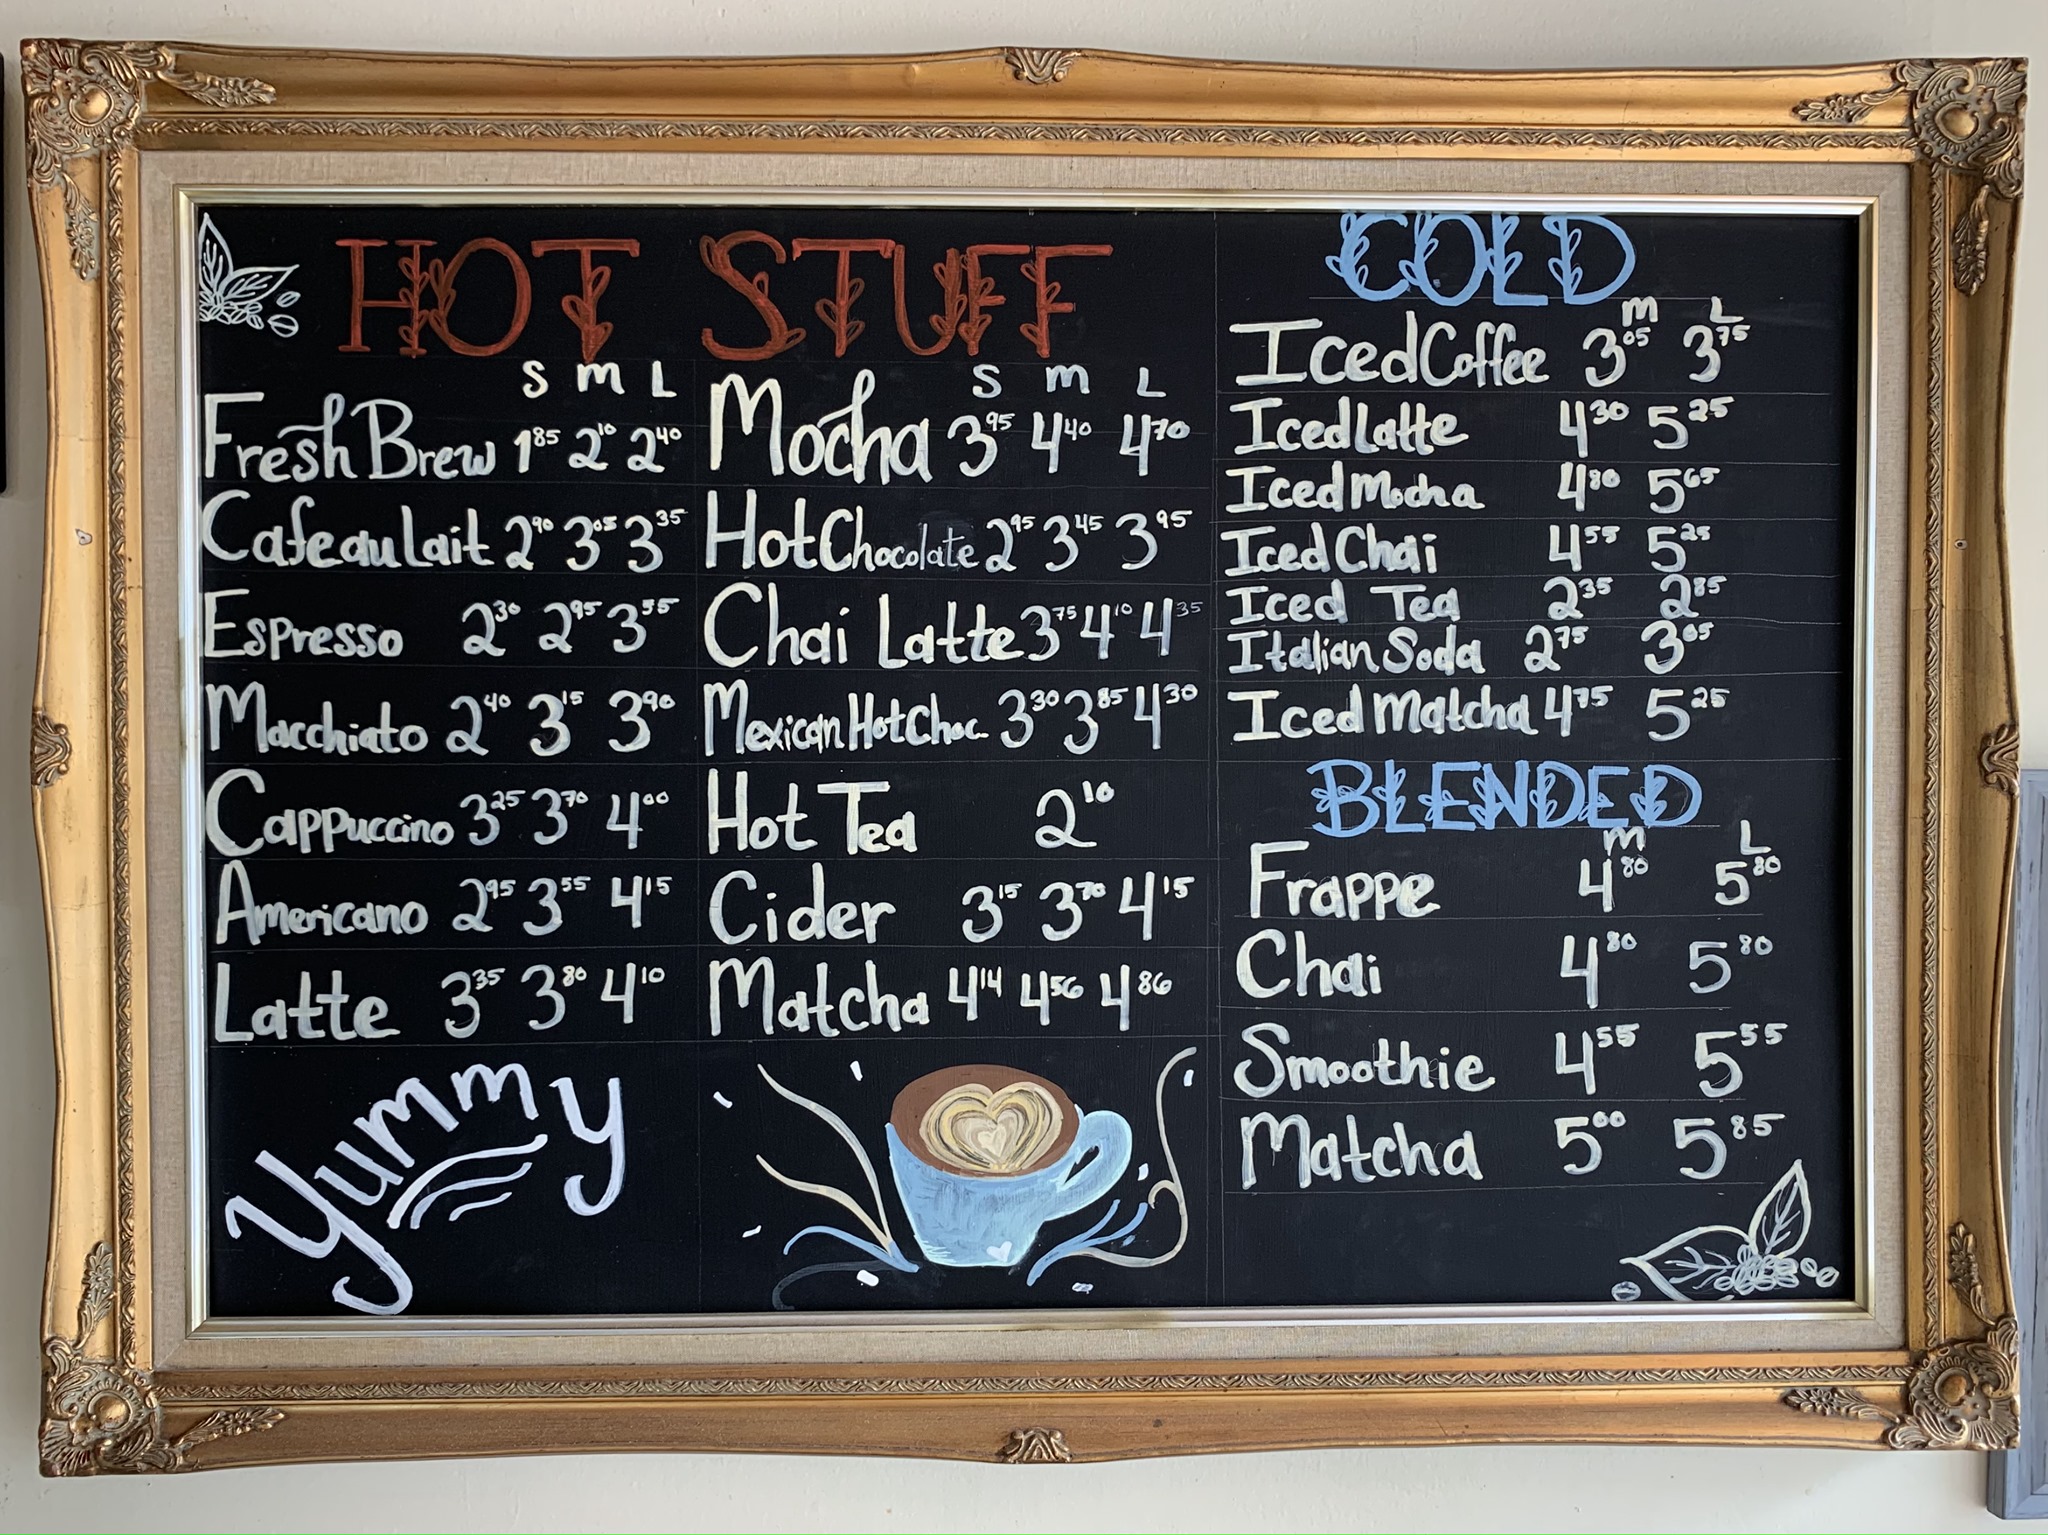 HOT STUFF
S M L
Fresh Brew 1.85 2.10 2.40
Cafe au Lait 2.90 3.05 3.35
Espresso 2.30 2.95 3.55
Macchiato 2.40 3.15 3.90
Cappuccino 3.25 3.70 4.00
Americano 2.95 3.55 4.15
Latte 3.35 3.80 4.10
Yummy
S M L
Mocha 3.95 4.40 4.70
Hot Chocolate 2.95 3.45 3.95
Chai Latte 3.75 4.10 4.35
Mexican Hot Choc. 3.30 3.85 4.30
Hot Tea 2.10
Cider 3.15 3.70 4.15
Matcha 4.14 4.56 4.86
COLD
M L
Iced Coffee 3.05 3.75
Iced Latte 4.30 5.25
Iced Mocha 4.80 5.65
Iced Chai 4.55 5.25
Iced Tea 2.35 2.85
Italian Soda 2.75 3.05
Iced Matcha 4.75 5.25
BLENDED
M L
Frappe 4.80 5.80
Chai 4.80 5.80
Smoothie 4.55 5.55
Matcha 5.00 5.85